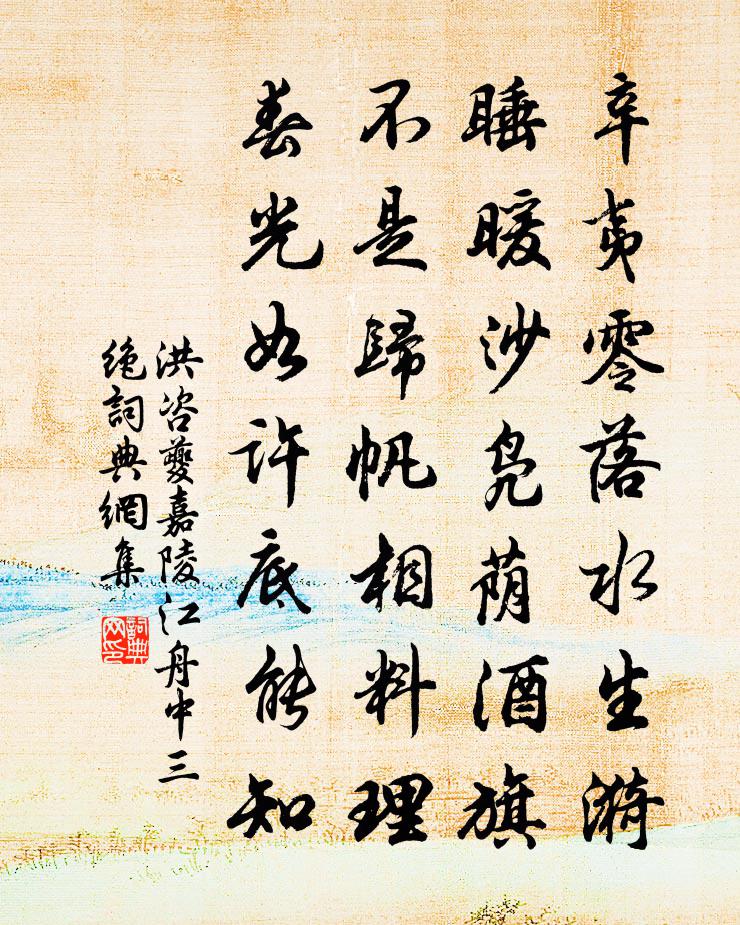 辛夷零落水生漪
睡暖沙凫荫酒旗
不是歸帆相料理
春光如许底能知
洪咨夔嘉陵江舟中三
绝詞典網集
詞典网印